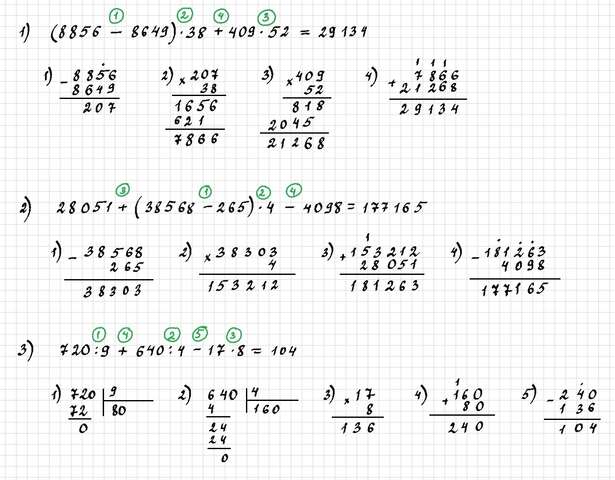 ① ② ④ ③
1) (8856 - 8649) · 38 + 409 · 52 = 29134
1) - 8856 2) × 207 3) × 409 4) + 7866
8649 38 52 21268
207 1656 818 29134
621 2045
7866 21268
③ ① ② ④
2) 28051 + (38568 - 265) · 4 - 4098 = 177165
1) - 38568 2) × 38303 3) + 153212 4) - 181263
265 4 28051 4098
38303 153212 181263 177165
① ④ ② ⑤ ③
3) 720 : 9 + 640 : 4 - 17 · 8 = 104
1) 720 | 9 2) 640 | 4 3) × 17 4) + 160 5) - 240
72 80 4 160 8 80 136
0 24 136 240 104
24
0